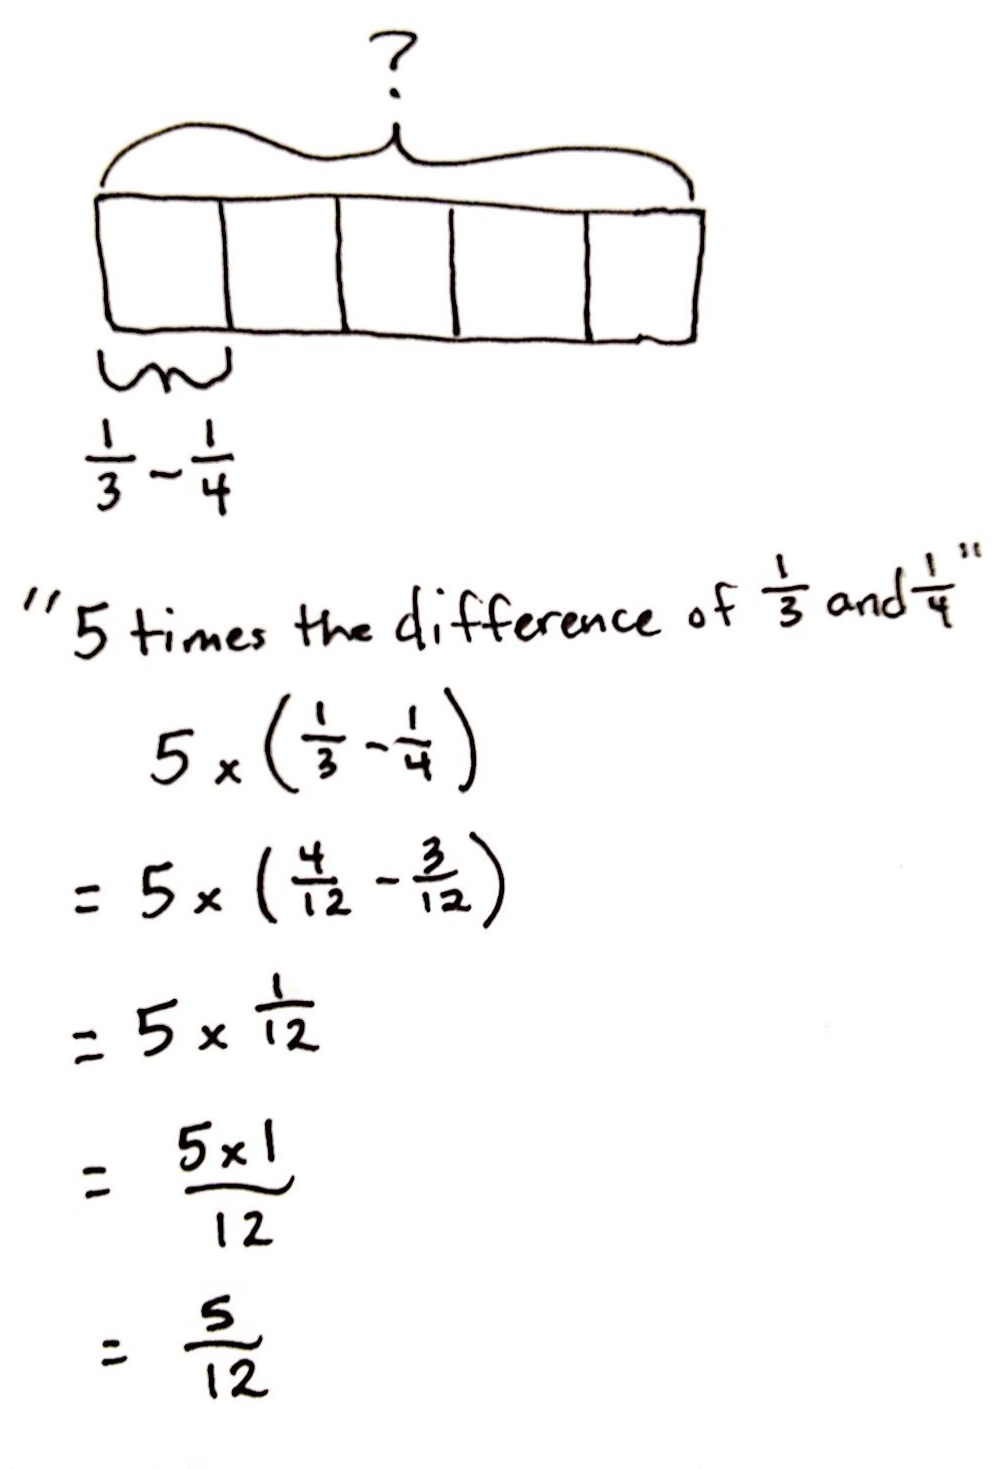 ?
1/3 - 1/4
"5 times the difference of 1/3 and 1/4"
5 x (1/3 - 1/4)
= 5 x (4/12 - 3/12)
= 5 x 1/12
= 5x1/12
= 5/12